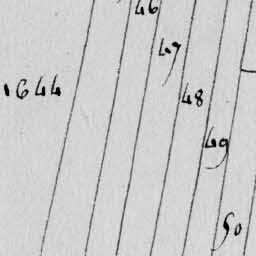 46
47
1644
48
49
50